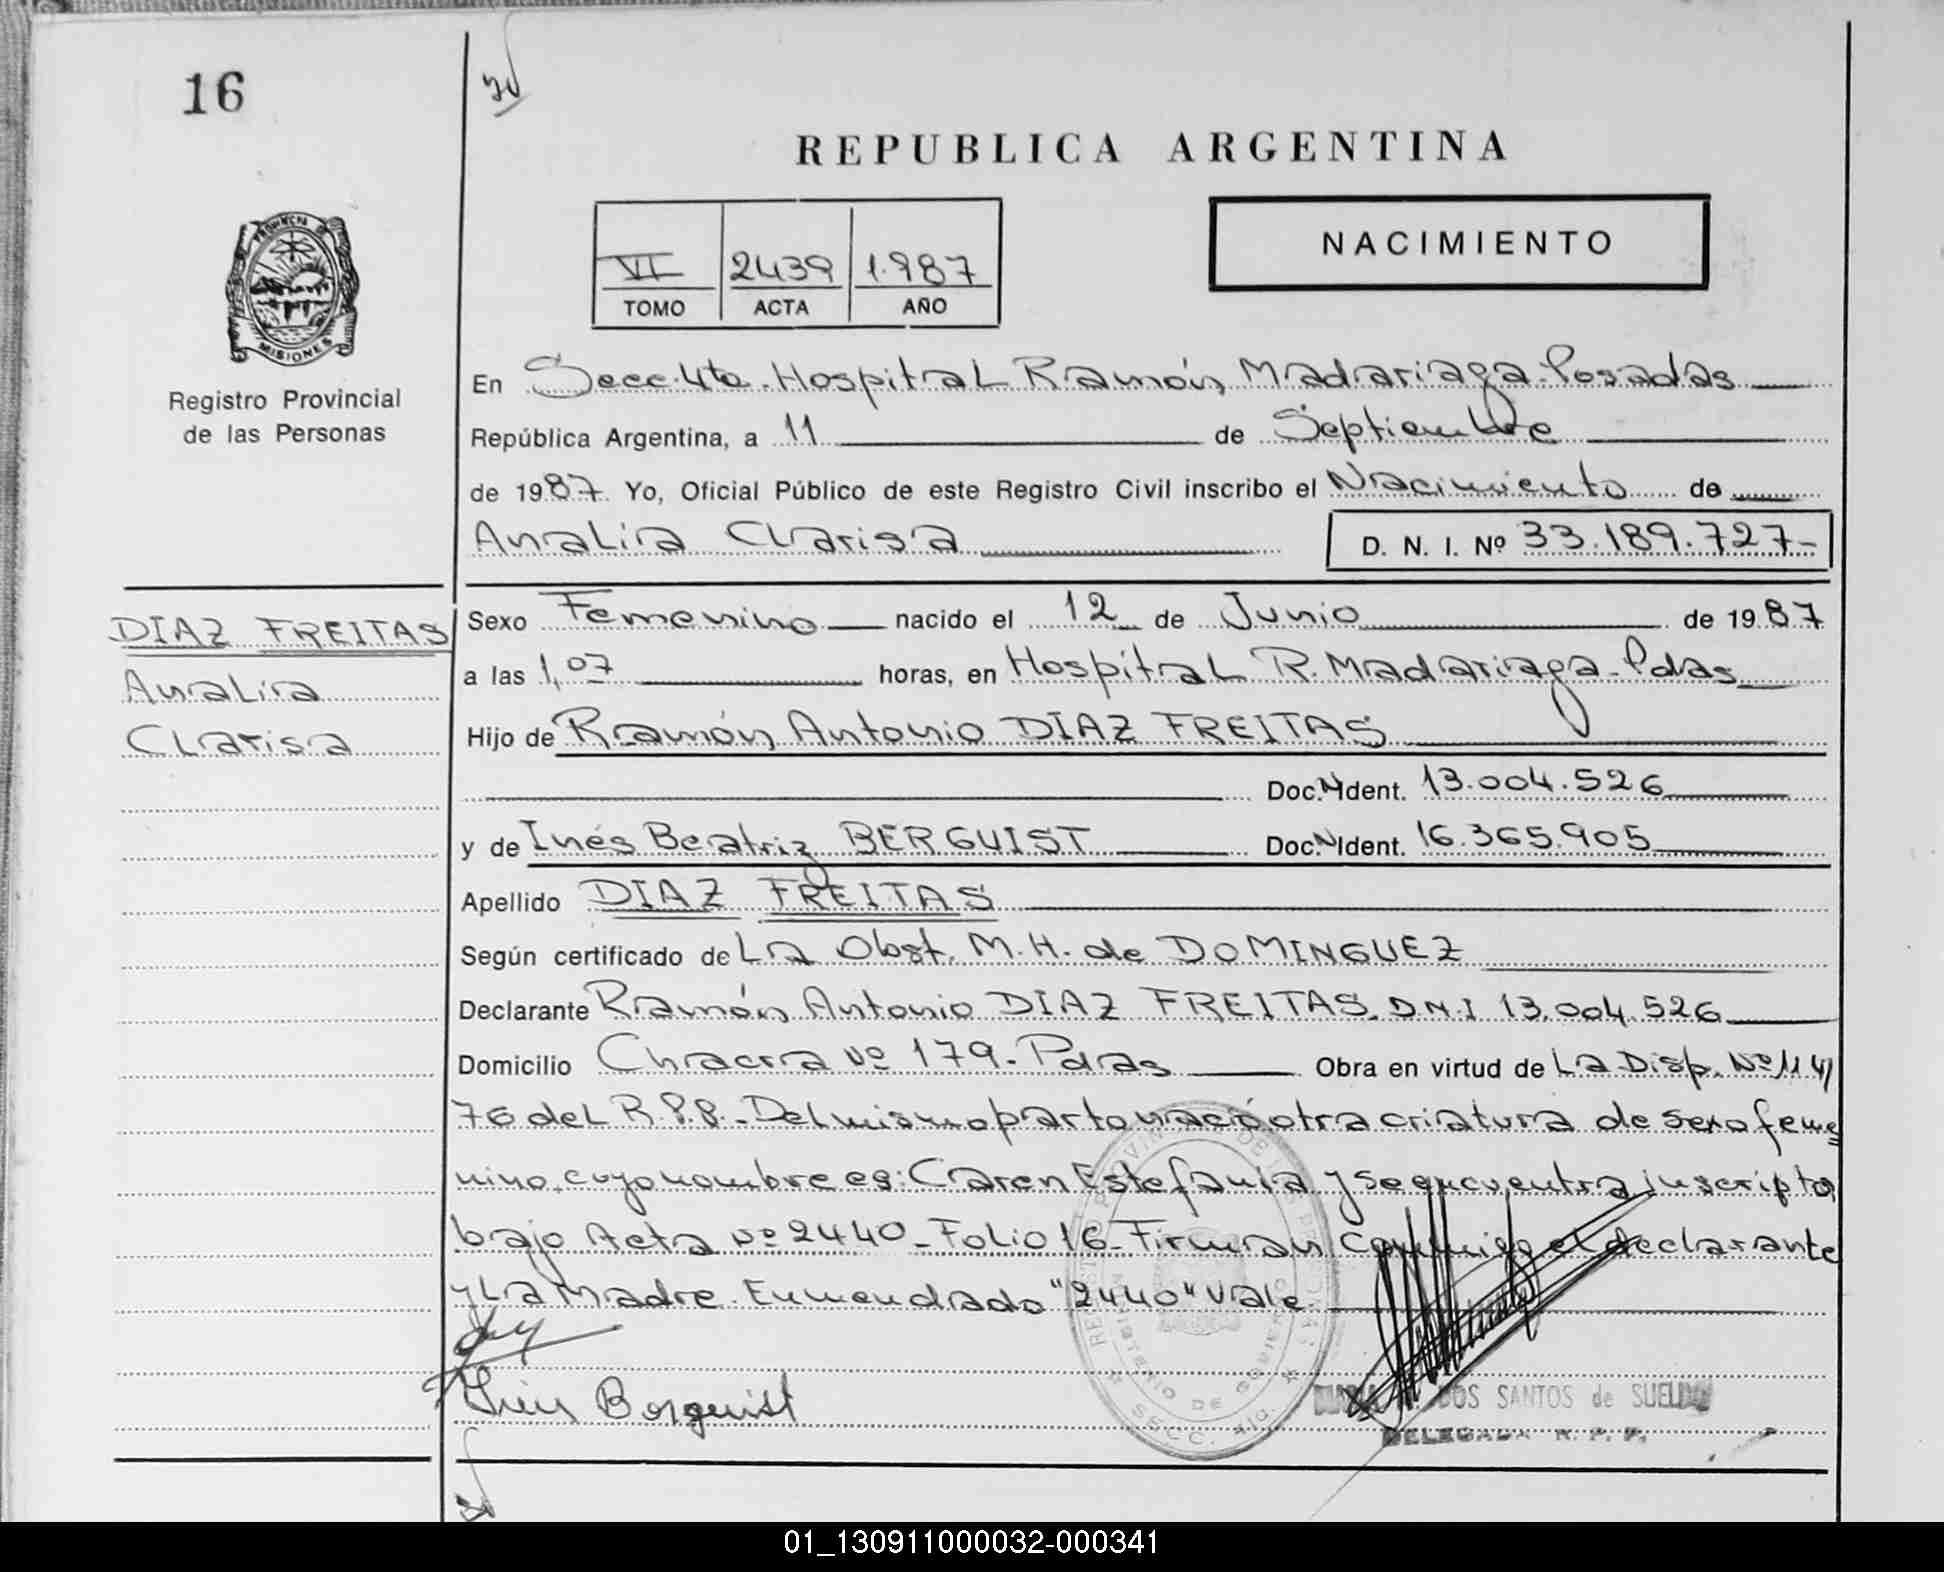 16
REPUBLICA ARGENTINA
NACIMIENTO
VI 2439 1.987
TOMO ACTA AÑO
PROVINCIA DE MISIONES
Registro Provincial
de las Personas
En Secc. 4ta. Hospital Ramón Madariaga - Posadas
República Argentina, a 11 de Septiembre
de 1987. Yo, Oficial Público de este Registro Civil inscribo el Nacimiento de
Analia Clarisa D. N. I. Nº 33.189.727-
DIAZ FREITAS
Analia
Clarisa
Sexo Femenino nacido el 12 de Junio de 1987
a las 1,07 horas, en Hospital R. Madariaga - Pdas
Hijo de Ramón Antonio DIAZ FREITAS
Doc. N Ident. 13.004.526
y de Inés Beatriz BERGUIST Doc. N Ident. 16.365.905
Apellido DIAZ FREITAS
Según certificado de La Obst. M. H. de DOMINGUEZ
Declarante Ramón Antonio DIAZ FREITAS. D.N.I 13.004.526
Domicilio Chacra Nº 179 - Pdas Obra en virtud de La Disp. Nº 114/
76 del R.P.P. - Del mismo parto nació otra criatura de sexo feme
nino, cuyo nombre es: Caren Estefania y se encuentra inscripta
bajo Acta Nº 2440 - Folio 16 - Firman conmigo el declarante
y La Madre. Enmendado "2440" Vale
Inés Berguist
REGISTRO PROVINCIAL DE LAS PERSONAS
MINISTERIO DE GOBIERNO
SECC. 4ta.
DOS SANTOS de SUELDO
DELEGADA R. P. P.
01_130911000032-000341